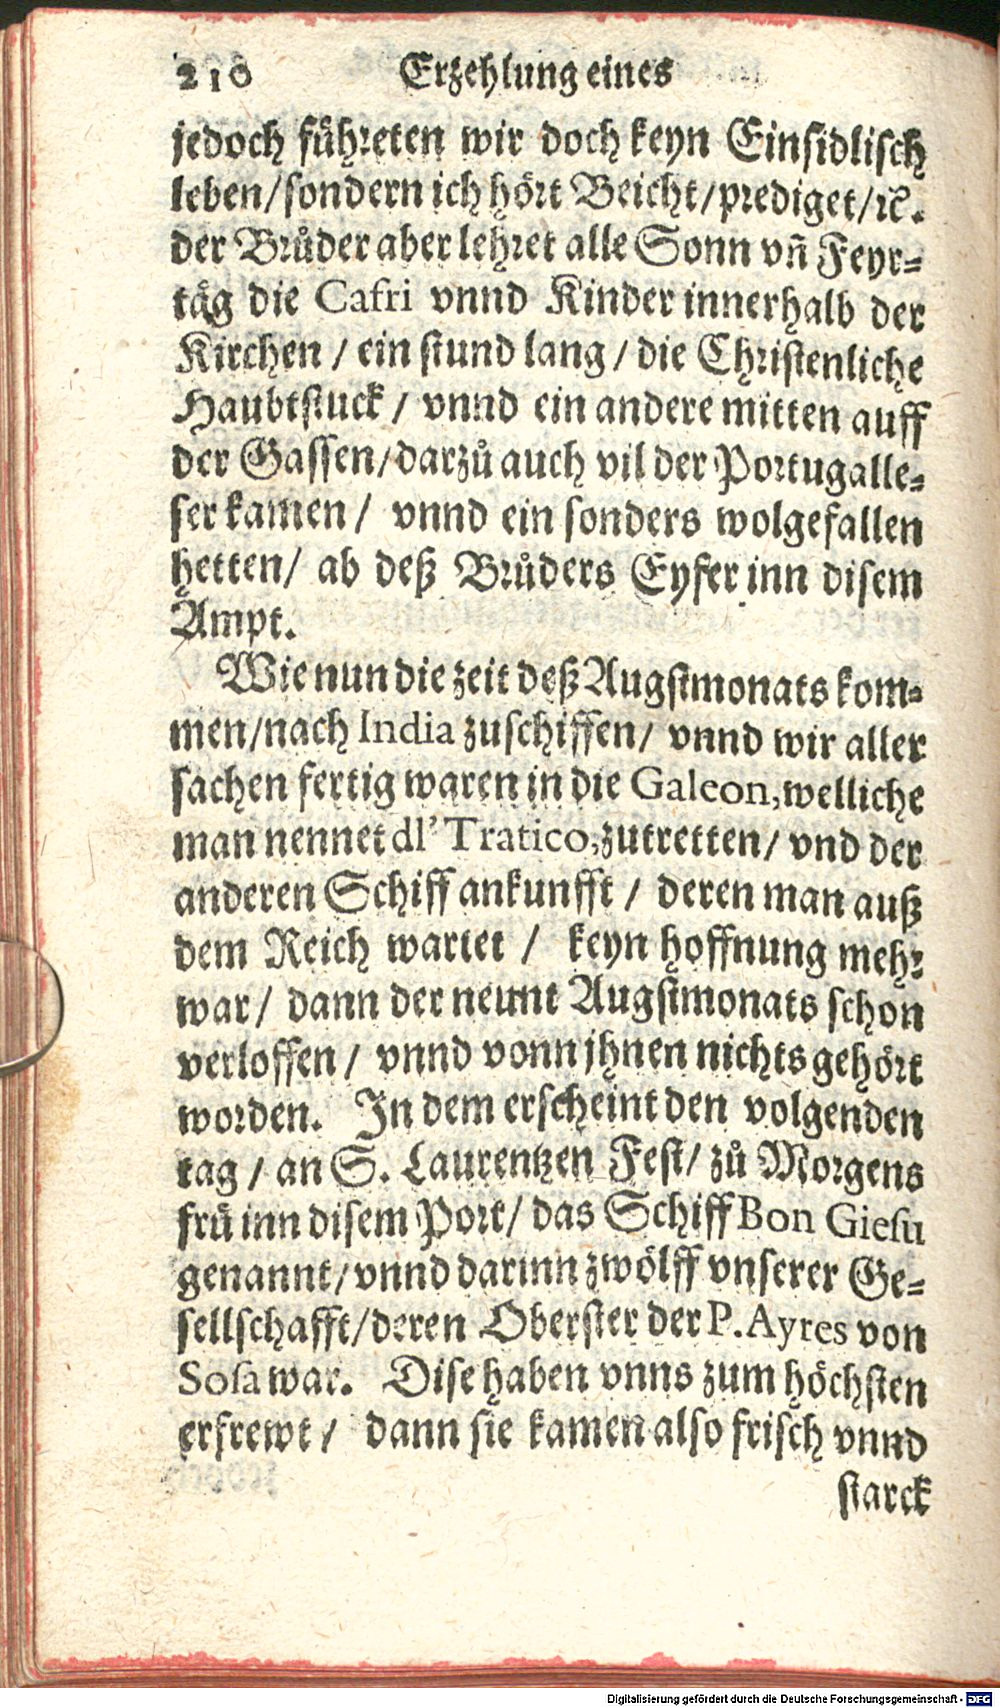 210 Erzehlung eines
jedoch führeten wir doch keyn Einsidlisch
leben/sondern ich hört Beicht/prediget/ꝛc.
der Brůder aber lehret alle Sonn vñ Feyr-
täg die Cafri vnnd Kinder innerhalb der
Kirchen / ein stund lang / die Christenliche
Haubtstuck / vnnd ein andere mitten auff
der Gassen/darzů auch vil der Portugalle-
ser kamen / vnnd ein sonders wolgefallen
hetten/ ab deß Brůders Eyfer inn disem
Ampt.
Wie nun die zeit deß Augstmonats kom-
men/nach India zuschiffen/ vnnd wir aller
sachen fertig waren in die Galeon, welliche
man nennet dl' Tratico, zutretten/ vnd der
anderen Schiff ankunfft / deren man auß
dem Reich wartet / keyn hoffnung mehr
war/ dann der neunt Augstmonats schon
verloffen / vnnd vonn jhnen nichts gehört
worden. In dem erscheint den volgenden
tag / an S. Laurentzen Fest/ zů Morgens
frü inn disem Port/ das Schiff Bon Giesu
genannt/vnnd darinn zwölff vnserer Ge-
sellschafft/deren Oberster der P. Ayres von
Sosa war. Dise haben vnns zum höchsten
erfrewt / dann sie kamen also frisch vnnd
starck
Digitalisierung gefördert durch die Deutsche Forschungsgemeinschaft - DFG